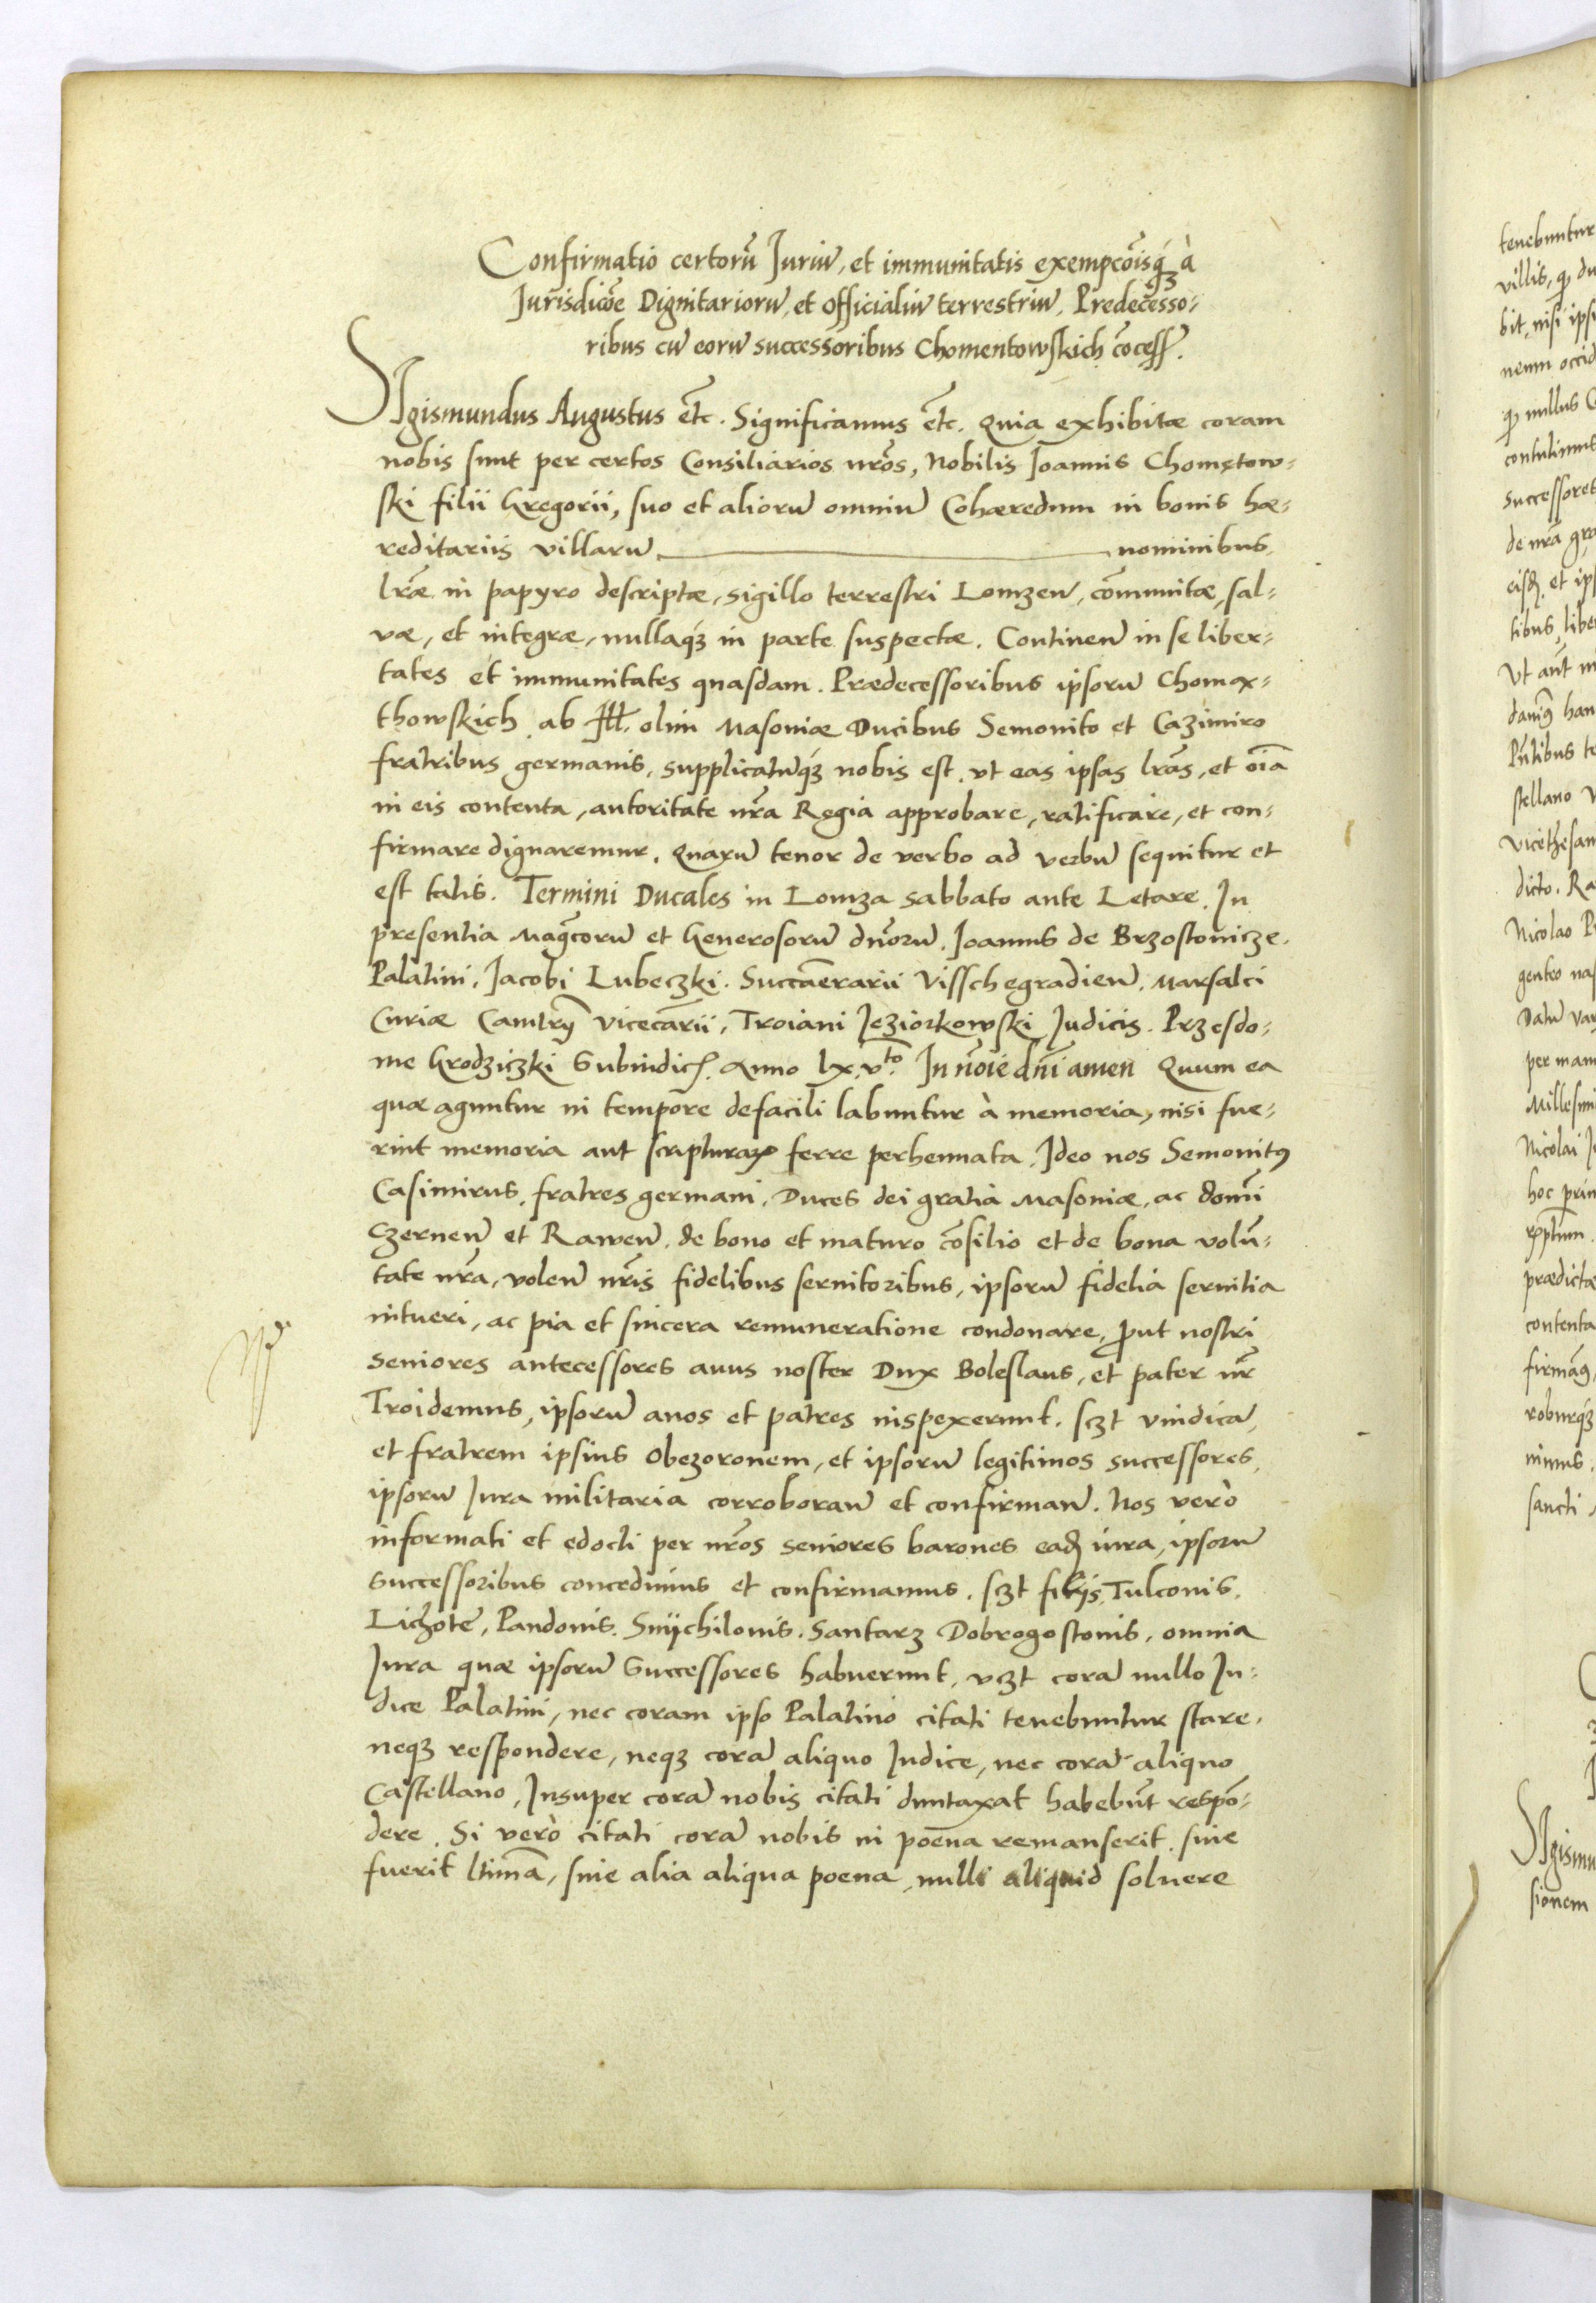 Confirmatio certorũ Juriũ, et immunitatis exempcõisq́ʒ à
Jurisdicõe Dignitariorũ, et Officialiũ terrestriũ, Predecesso-
ribus cũ eorũ successoribus Chomentowskich cõcess.
Sigismundus Augustus etc̃. Significamus etc̃. Quia exhibitæ coram
nobis sunt per certos Consiliarios nr̃os, Nobilis Joannis Chomętow-
ski filii Gregorii, suo et aliorũ omniũ Cohæredum in bonis hæ-
reditariis villarũ nominibus,
lr̃æ in papyro descriptæ, sigillo terrestri Lomzeñ, cõmunitæ, sal-
væ, et integræ, nullaq́ʒ in parte suspectæ. Continen̄ in se liber-
tates et immunitates quasdam. Prædecessoribus ipsorũ Chomąx-
thowskich ab Ill. olim Masoviæ Ducibus Semovito et Cazimiro
fratribus germanis, supplicatũq́ʒ nobis est, ut eas ipsas lr̃as, et oĩa
in eis contenta, autoritate nr̃a Regia approbare, ratificare, et con-
firmare dignaremur. Quarũ tenor de verbo ad verbũ sequitur et
est talis. Termini Ducales in Lomza sabbato ante Letare. In
presentia Magc̃orũ et Generosorũ dñorũ. Joannis de Brzostowicze.
Palatini, Jacobi Lubeczki. Succam̃erarii Visschegradieñ. Marsalci
Curiæ Camtrỹ Vicecãrii, Troiani Jeziorkowski Judicis. Przesdo-
me Grodziczki Subiudicis. Anno lx.vto. In nõie dñi amen Quum ea
quæ aguntur in tempore defacili labuntur à memoria, nisi fue-
rint memoria aut scripturarꝝ ferre perhennata. Ideo nos Semovitꝰ
Casimirus, fratres germani, Duces dei gratia Masoviæ, ac domĩ
Czerneñ et Raweñ, de bono et maturo cõsilio et de bona volũ-
tate nr̃a, voleñ nr̃is fidelibus servitoribus, ipsorũ fidelia servitia
intueri, ac pia et sincera remuneratione condonare, ꝓut nostri
seniores antecessores avus noster Dux Boleslaus, et pater nr̃
Troidenus, ipsorũ avos et patres inspexerunt, sczt Vindica,
et fratrem ipsius Obezoronem, et ipsorũ legitimos successores,
ipsorũ Jura militaria corroborañ et confirmañ. Nos verò
informati et edocti per nr̃os seniores barones eadͫ iura, ipsorũ
successoribus concedimus et confirmamus. sczt filijs, Tulconis,
Lichote, Pandonis. Smychilonis. Santarz Dobrogostonis, omnia
Jura quæ ipsorũ successores habuerunt, vczt corã nullo Ju-
dice Palatini, nec coram ipso Palatino citati tenebuntur stare,
neqʒ respondere, neqʒ corã aliquo Judice, nec corã aliquo
Castellano, Insuper corã nobis citati duntaxat habebũt respõ-
dere. Si verò citati corã nobis in poena remanserit, sive
fuerit ltimã, sive alia aliqua poena, nulli aliquid solvere